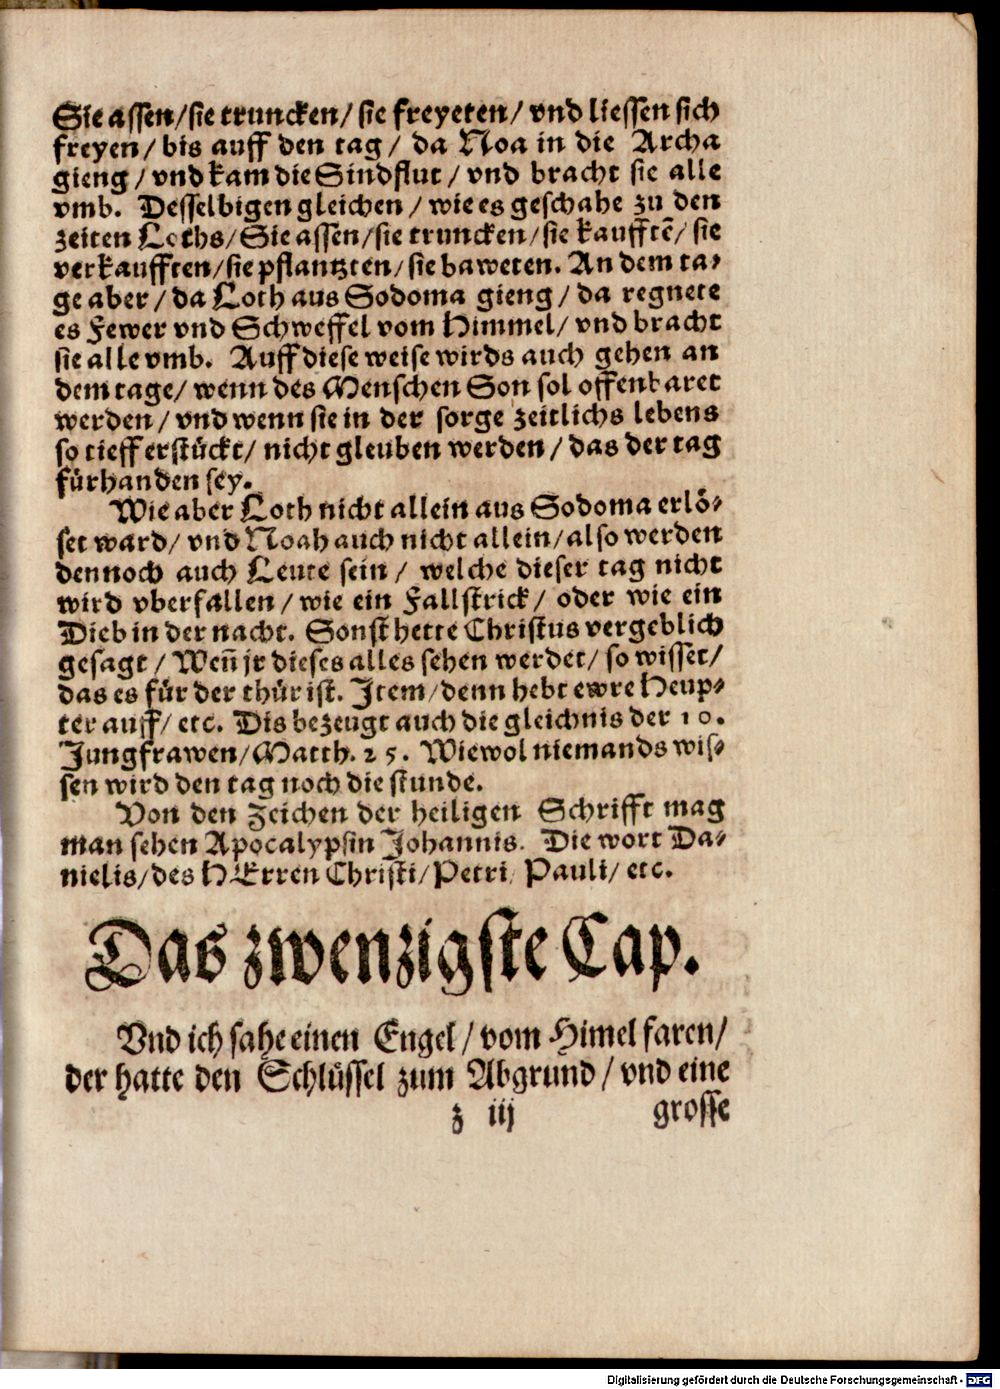 Sie assen/sie truncken/ sie freyeten/ vnd liessen sich
freyen/ bis auff den tag/ da Noa in die Archa
gieng/ vnd kam die Sindflut/ vnd bracht sie alle
vmb. Desselbigen gleichen/ wie es geschahe zu den
zeiten Loths/ Sie assen/sie truncken/sie kaufftē/ sie
verkaufften/sie pflantzten/sie baweten. An dem ta-
ge aber/ da Loth aus Sodoma gieng/ da regnete
es Fewer vnd Schweffel vom Himmel/ vnd bracht
sie alle vmb. Auff diese weise wirds auch gehen an
dem tage/ wenn des Menschen Son sol offenbaret
werden/ vnd wenn sie in der sorge zeitlichs lebens
so tieff erstückt/ nicht gleuben werden/ das der tag
fürhanden sey.
Wie aber Loth nicht allein aus Sodoma erlö-
set ward/ vnd Noah auch nicht allein/ also werden
dennoch auch Leute sein/ welche dieser tag nicht
wird vberfallen/ wie ein Fallstrick/ oder wie ein
Dieb in der nacht. Sonst hette Christus vergeblich
gesagt/ Weñ jr dieses alles sehen werdet/ so wisset/
das es für der thür ist. Item/denn hebt ewre Heup-
ter auff/ etc. Dis bezeugt auch die gleichnis der 10.
Jungfrawen/Matth. 25. Wiewol niemands wis-
sen wird den tag noch die stunde.
Von den Zeichen der heiligen Schrifft mag
man sehen Apocalypsin Johannis. Die wort Da-
nielis/des HErren Christi/ Petri/ Pauli/ etc.
Das zwenzigste Cap.
Vnd ich sahe einen Engel/ vom Himel faren/
der hatte den Schlüssel zum Abgrund/ vnd eine
z iij grosse
Digitalisierung gefördert durch die Deutsche Forschungsgemeinschaft - DFG